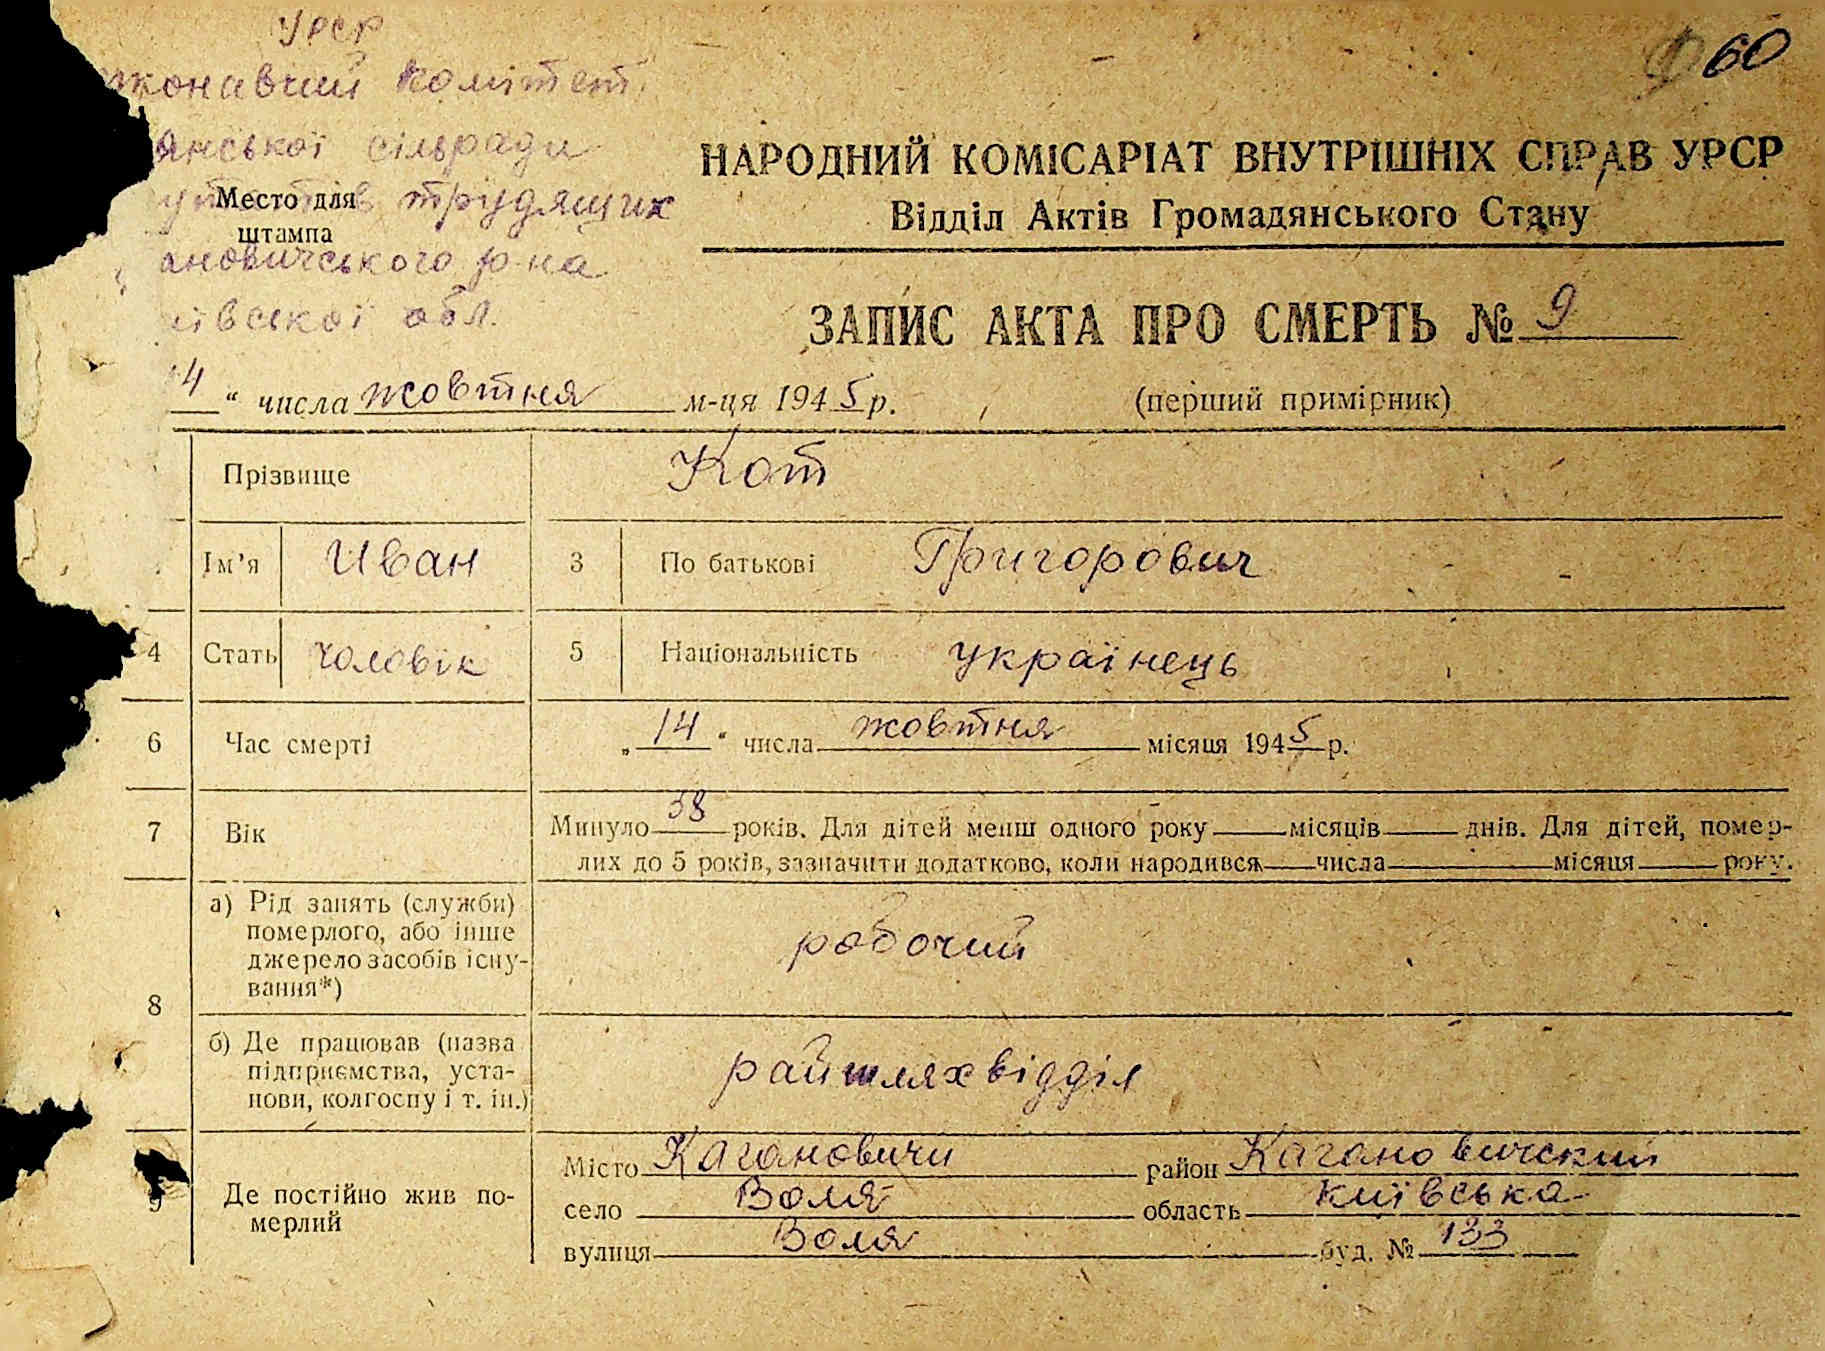 УРСР
конавчий комітет
анської сільради
трудящих
Место для
штампа
ановичського р-на
ївської обл.
60
НАРОДНИЙ КОМІСАРІАТ ВНУТРІШНІХ СПРАВ УРСР
Відділ Актів Громадянського Стану
ЗАПИС АКТА ПРО СМЕРТЬ № 9
14 " числа жовтня м-ця 1945 р.
(перший примірник)
Прізвище Кот
Ім'я Иван 3 По батькові Григорович
4 Стать чоловік 5 Національність українець
6 Час смерті „ 14 " числа жовтня місяця 1945 р.
7 Вік Минуло 38 років. Для дітей менш одного року місяців днів. Для дітей, помер-
лих до 5 років, зазначити додатково, коли народився числа місяця року.
8 а) Рід занять (служби)
померлого, або інше
джерело засобів існу-
вання*)
робочий
б) Де працював (назва
підприємства, уста-
нови, колгоспу і т. ін.)
райшляхвідділ
9 Де постійно жив по-
мерлий
Місто Кагановичи район Кагановичский
село Воля область київська
вулиця Воля буд. № 133